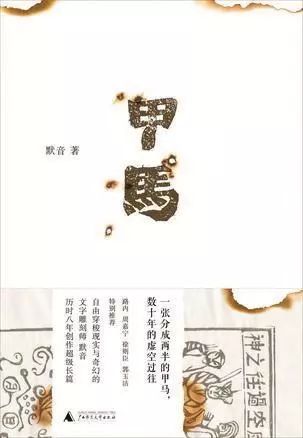 甲馬
默音 著
一张分成两半的甲马，
数十年的虚空过往
路内 周嘉宁 徐则臣 郭玉洁
特别推荐
自由穿梭现实与奇幻的
文字雕刻师 默音
历时八年创作超级长篇
广西师范大学出版社
查過往之神